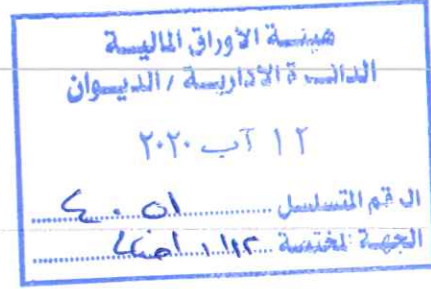 هيئة الأوراق المالية
الدائرة الادارية / الديوان
١٢ آب ٢٠٢٠
الرقم المتسلسل
الجهة المختصة